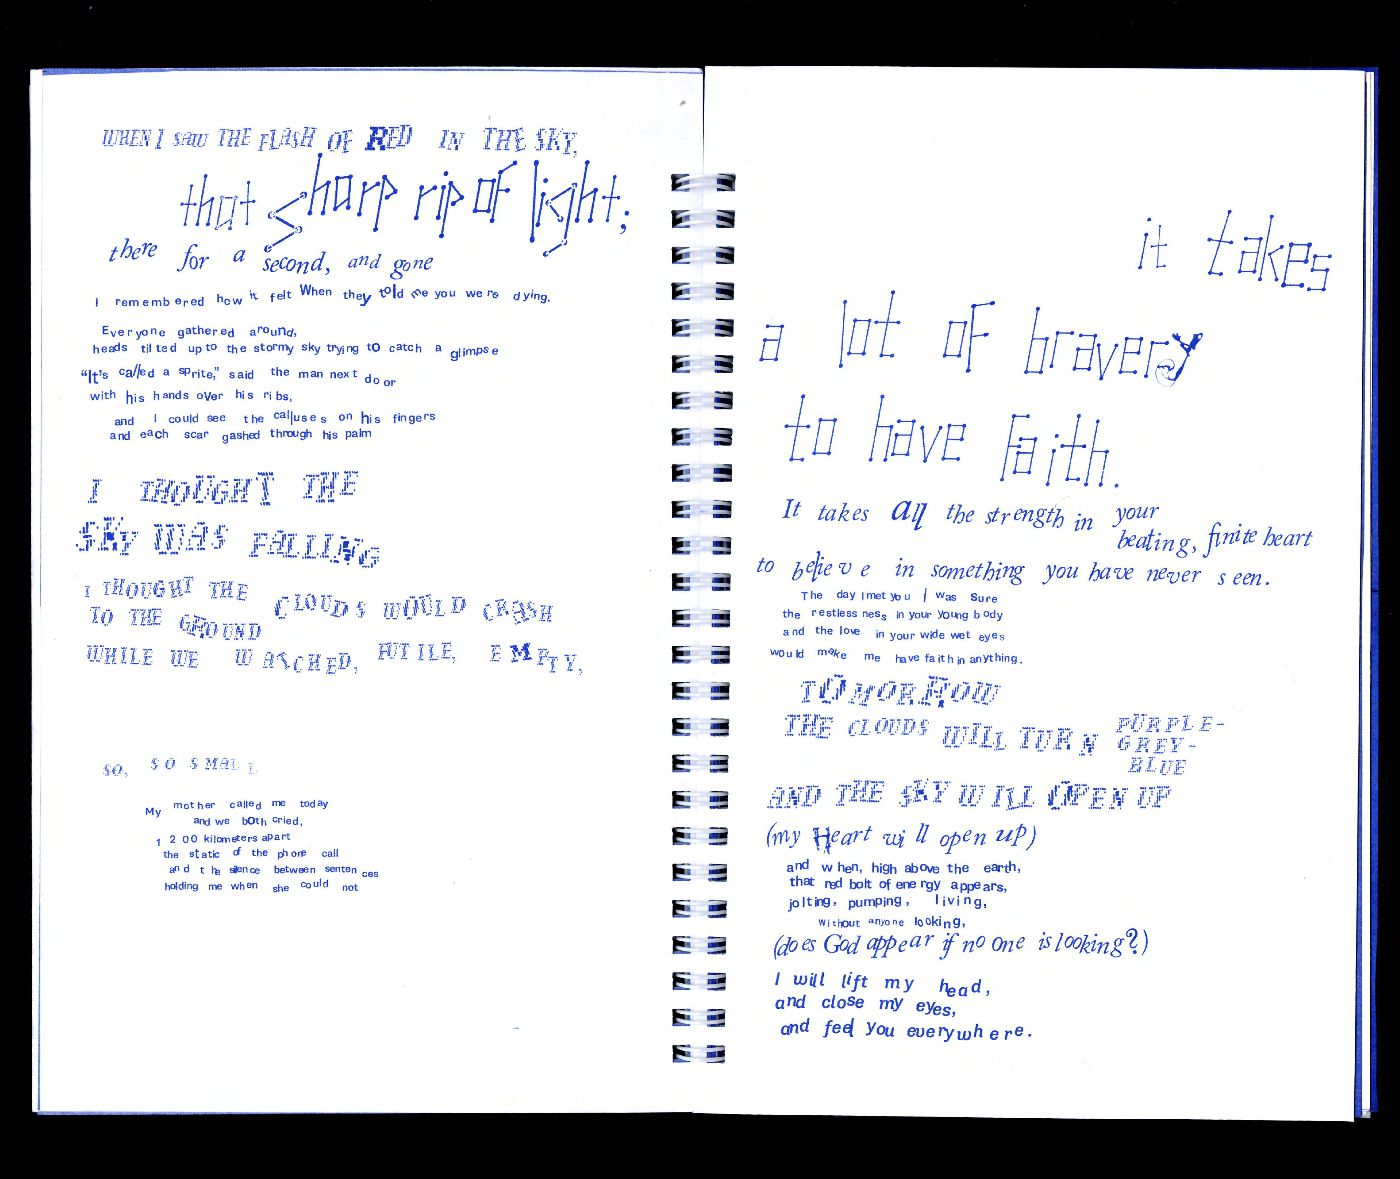 WHEN I SAW THE FLASH OF RED IN THE SKY,
that sharp rip of light;
there for a second, and gone
I remembered how it felt When they told me you were dying.
Everyone gathered around,
heads tilted up to the stormy sky trying to catch a glimpse
“It's called a sprite,” said the man next door
with his hands over his ribs,
and I could see the calluses on his fingers
and each scar gashed through his palm
I THOUGHT THE
SKY WAS FALLING
I THOUGHT THE CLOUDS WOULD CRASH
TO THE GROUND
WHILE WE WATCHED, FUTILE, EMPTY,
SO, SO SMALL
My mother called me today
and we bOth cried,
1 200 kilometers apart
the static of the phone call
and the silence between sentences
holding me when she could not
it takes
a lot of bravery
to have faith.
It takes all the strength in your
beating, finite heart
to believe in something you have never seen.
The day I met you I was Sure
the restlessness in your young body
and the love in your wide wet eyes
would make me have faith in anything.
TOMORROW
THE CLOUDS WILL TURN PURPLE-
GREY-
BLUE
AND THE SKY WILL OPEN UP
(my Heart will open up)
and when, high above the earth,
that red bolt of energy appears,
jolting, pumping, living,
without anyone looking,
(does God appear if no one is looking?)
I will lift my head,
and close my eyes,
and feel you everywhere.